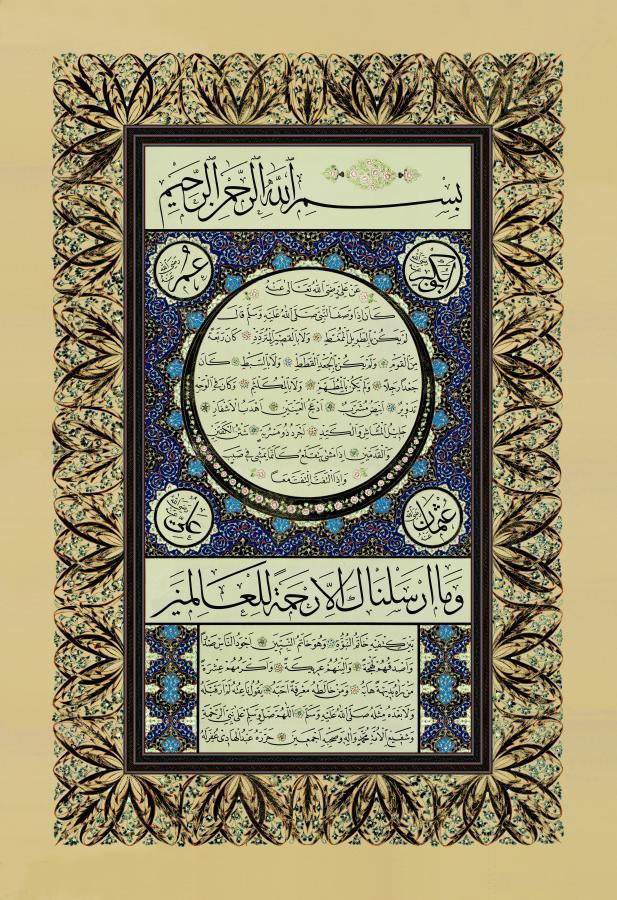 بِسْمِ اللهِ الرَّحْمٰنِ الرَّحِيمِ
أبو بكر
عمر رضي الله عنه
عن علي رضي الله تعالى عنه
كان إذا وصف النبي صلى الله عليه وسلم قال
لم يكن بالطويل الممغط ولا بالقصير المتردد كان ربعة
من القوم ولم يكن بالجعد القطط ولا بالسبط كان
جعدا رجلا ولم يكن بالمطهم ولا بالمكلثم وكان في الوجه
تدوير أبيض مشرب أدعج العينين أهدب الأشفار
جليل المشاش والكتد أجرد ذو مسربة شثن الكفين
والقدمين إذا مشى يتقلع كأنما يمشي في صبب
وإذا التفت التفت معا
عثمان
علي
وما أرسلناك إلا رحمة للعالمين
بين كتفيه خاتم النبوة وهو خاتم النبيين أجود الناس صدرا
وأصدقهم لهجة وألينهم عريكة وأكرمهم عشرة
من رآه بديهة هابه ومن خالطه معرفة أحبه يقول ناعته لم أر قبله
ولا بعده مثله صلى الله عليه وسلم اللهم صل وسلم على نبي الرحمة
وشفيع الأمة محمد وآله وصحبه أجمعين حرره عبد الهادي غفر له